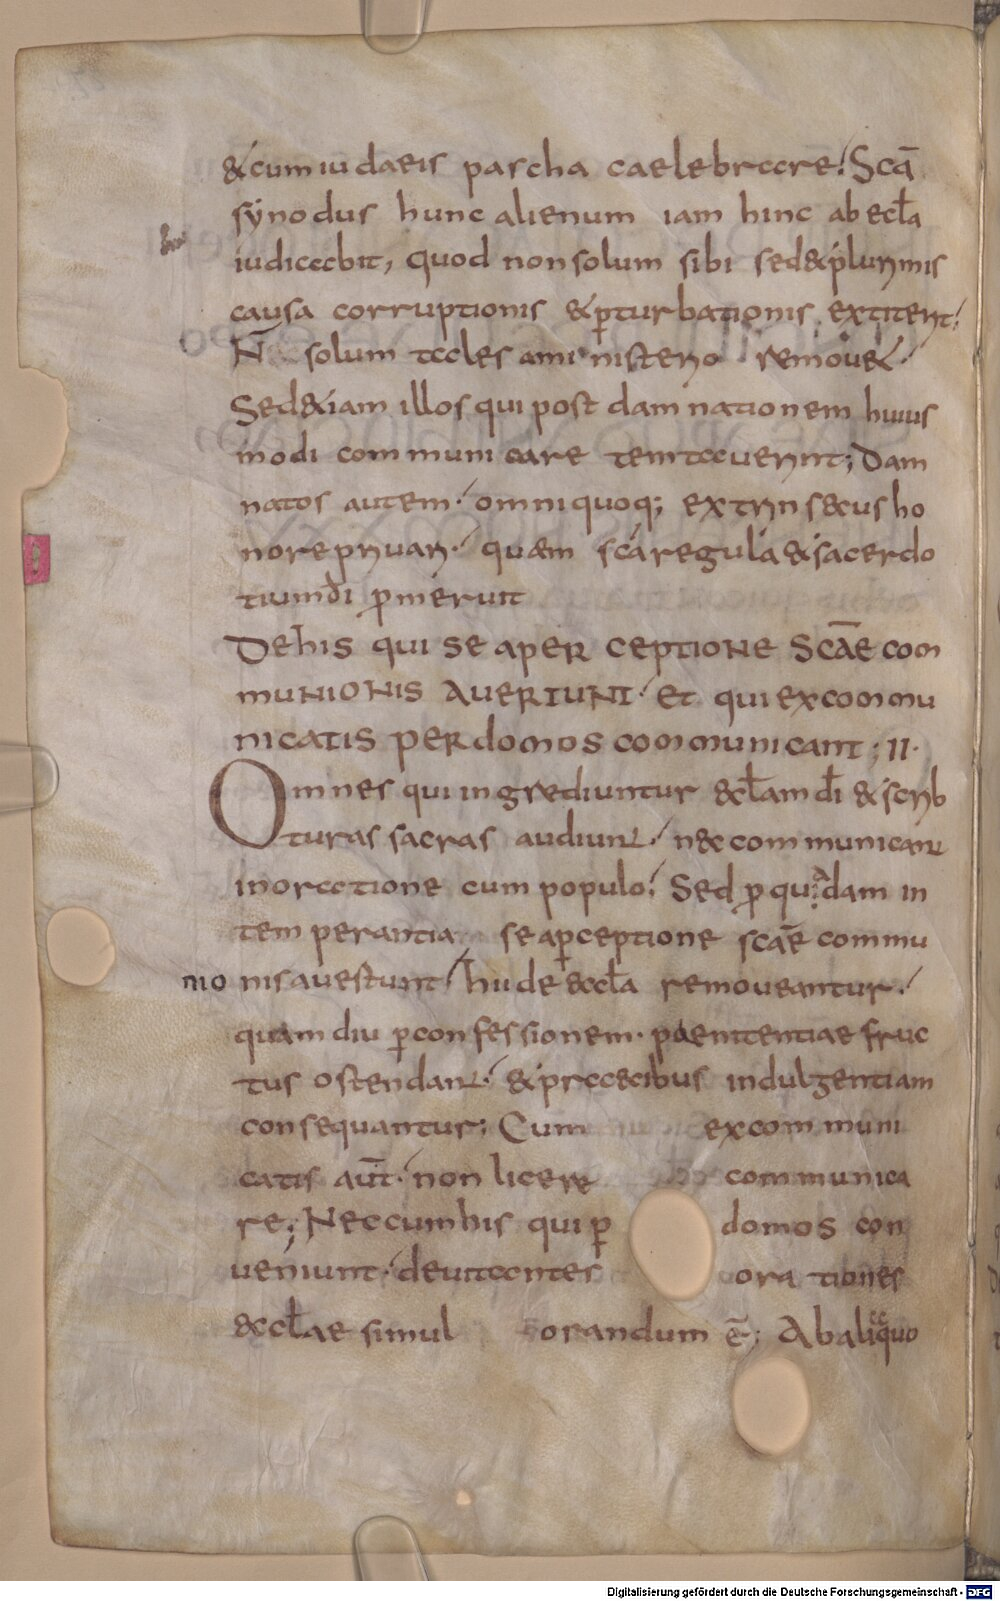 & cum iudaeis pascha caelebrare; Scā
synodus hunc alienum iam hinc ab eccła
iudicabit, quod non solum sibi sed & plurimis
causa corruptionis & p̱turbationis extiterit;
N solum tales a ministerio remouet
Sed & iam illos qui post damnationem huius
modi communicare temtauerint; Dam
natos autem omni quoq; extrinsecus ho
nore priuari quam scā regula & sacerdo
tium dī p̱meruit
De his qui se a perceptione Scāe com
munionis auertunt et qui excommu
nicatis per domos communicant; II·
Omnes qui ingrediuntur eccłam dī & scrib
turas sacras audiunt nec communicant
in oratione cum populo; Sed p̱ quadam in
temperantia se a p̱ceptione scāe commu
nio nis auestunt hii de eccła remoueantur
quam diu p̱ confessionem paenitentiae fruc
tus ostendant & praecibus indulgentiam
consequantur; Cum excommuni
catis aut̄ non licere communica
re; Nec cum his qui p̱ domos con
ueniunt deuitantes orationes
eccłae simul orandum ē; Ab aliqua quo
Digitalisierung gefördert durch die Deutsche Forschungsgemeinschaft - DFG